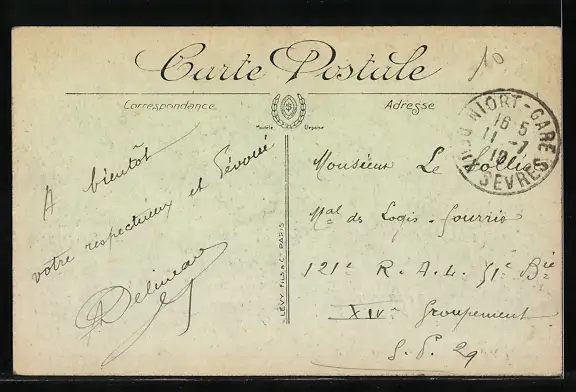 Carte Postale
10
Correspondance
Adresse
Modèle Déposé
NIORT-GARE
16 5
11 -7
DEUX SEVRES
A bientôt
votre respectueux et dévoué
Delineau
LEVY FILS & Cie PARIS
Monsieur Le
Mal des Logis - Fourrier
121e R. A. L. 51e Bie
XIVe Groupement
S. P. 29